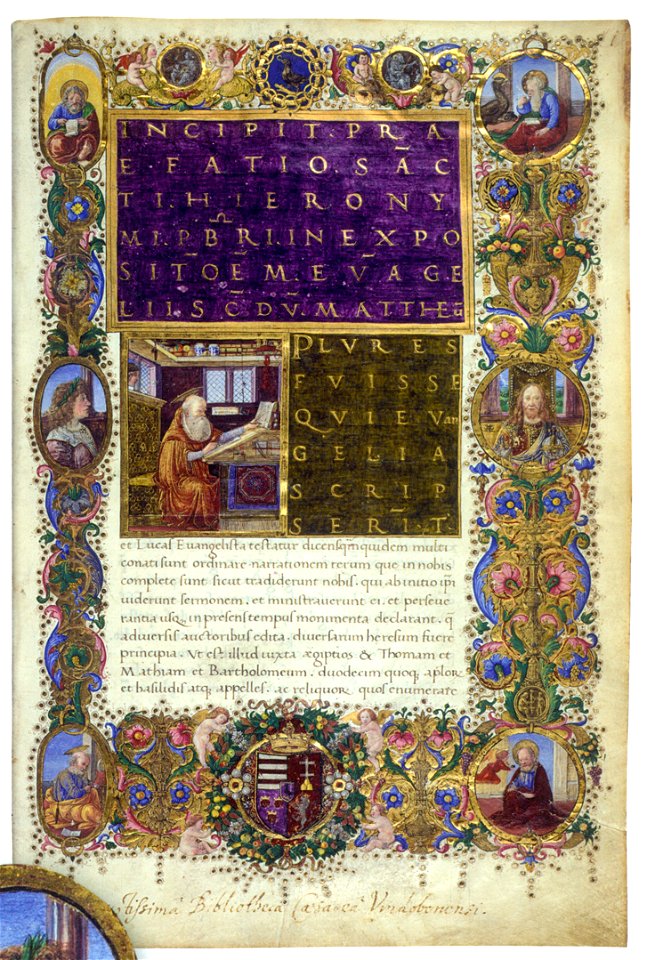 INCIPIT·PRA
E·FATIO·SĀC
TI·HIERONY
MI·PB̄RI·IN EXPO
SITŌEM·EVĀGE
LII·SC̄DV̄·MATTHEū
PLVRES
FVISSE
QVI EVan
GELIA
SCRIP
SERĪT
et Lucas Evangelista testatur dicens qm̄ quidem multi
conati sunt ordinare narrationem rerum que in nobis
complete sunt sicut tradiderunt nobis. qui ab initio ip̄i
viderunt sermonem. et ministraverunt ei. et perseve
rantia usq; in presens tempus monumenta declarant. q̄
a diversis auctoribus edita. diversarum heresum fuere
principia. Ut est illud iuxta ægiptios & Thomam et
Mathiam et Bartholomeum. duodecim quoq; ap̄lorū
et basilidis atq; appelles. ac reliquorū quos enumerare
Bibliothecâ Cæsareâ Vindobonensi.